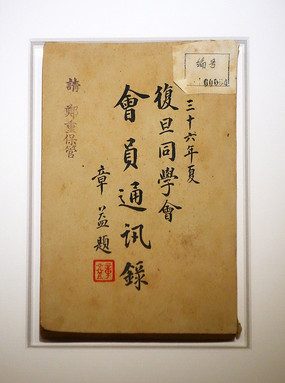 编号
三十六年夏
復旦同學會
會員通訊錄
章益題
請 鄭重保管